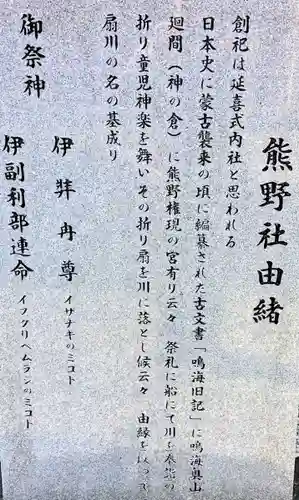 熊野社由緒
創祀は延喜式内社と思われる
日本史に蒙古襲来の頃に編纂された古文書「鳴海旧記」に鳴海奥山
廻間（神の倉）に熊野権現の宮有り云々 祭礼に船にて川を
折り童児神楽を舞いその折り扇を川に落とし候云々 由縁を以って
扇川の名の基成り
御祭神
伊弉冉尊 イザナキのミコト
伊副利部連命 イフクリベムラジのミコト